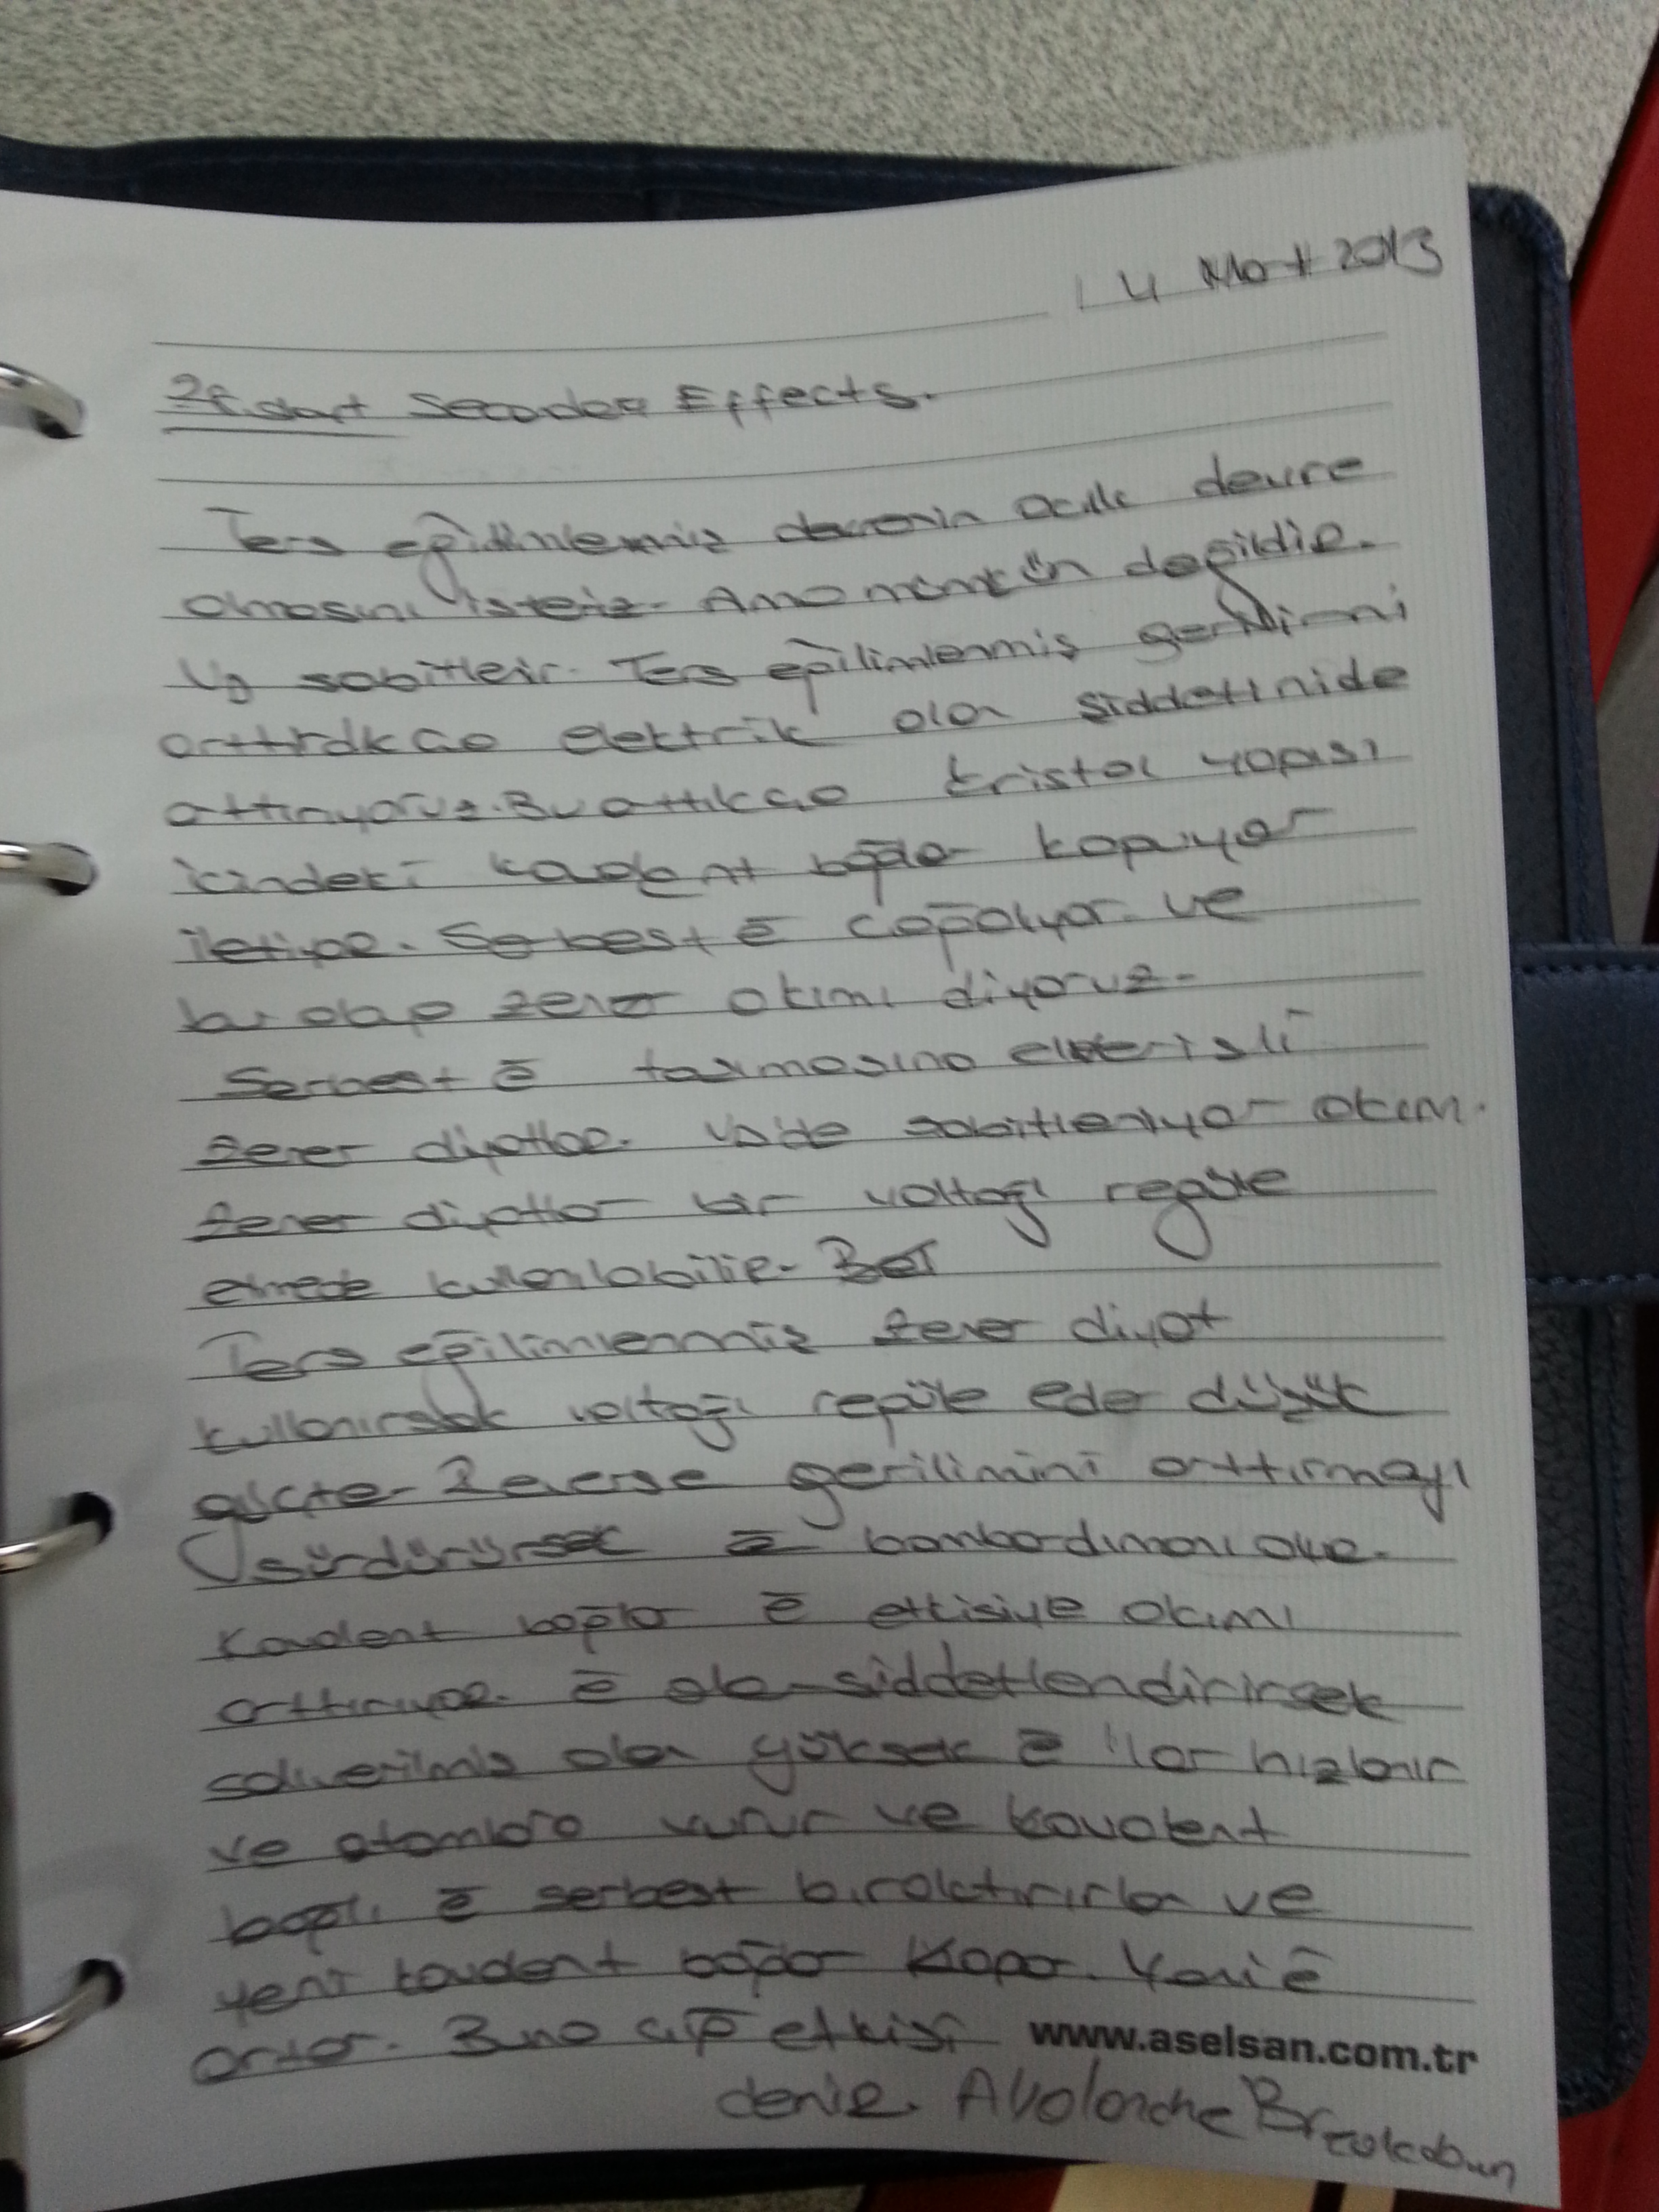 14 Mart 2013
Effects.
Ters eğilimlemiş devrenin açık devre
olmasını isteriz. Ama mümkün değildir.
sabitleir. Ters eğilimlenmiş gerilimi
arttırdıkça elektrik alan şiddetinide
arttırıyoruz. Bu arttıkça kristal yapısı
içindeki kovalent bağlar kopuyor
iletiyor. Serbest ē çoğalıyor. ve
bu olay zener akımı diyoruz.
Serbest ē taşımasına elverişli
zener diyotlar. sabitleniyor akım.
zener diyotlar bir voltağı regüle
etmede kullanılabilir.
Ters eğilimlenmiş zener diyot
kullanırsak voltağı regüle eder düşük
güçte. Reverse gerilimini arttırmayı
sürdürürsek ē bombardımanı olur.
Kovalent bağlar ē etkisiyle akımı
arttırıyor. ē alan şiddetlendirirsek
salıverilmiş olan yüksek ē 'lar hızlanır
ve atomlara vurur ve kovalent
bağlı ē serbest bıraktırırlar ve
yeni kovalent bağlar kopar. Yani ē
artar. Buna çığ etkisi www.aselsan.com.tr
denir. Avalanche Breakdown